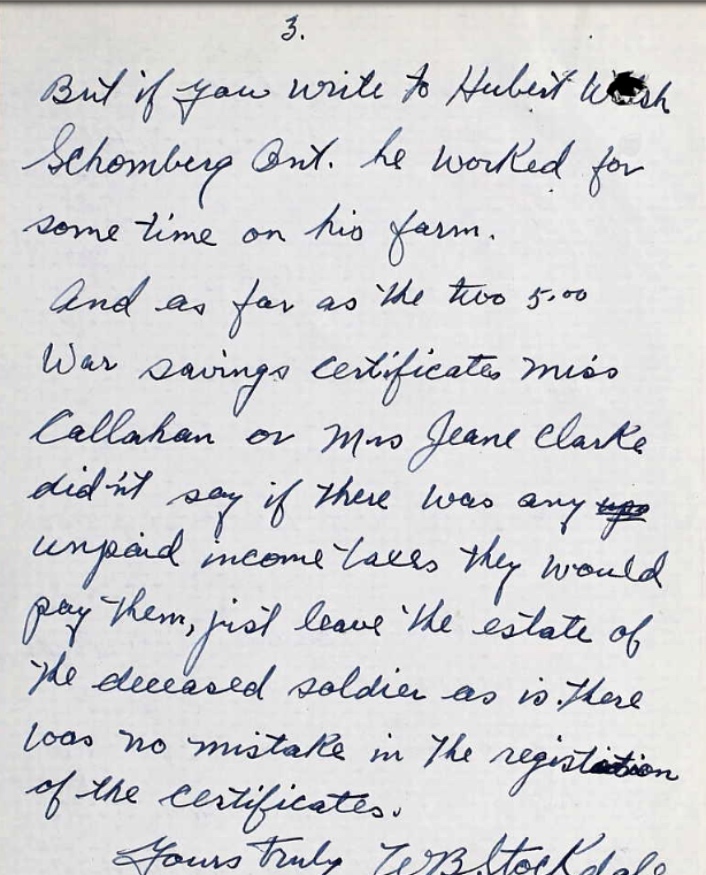 3.
But if you write to Hubert Wash
Schomberg Ont. he worked for
some time on his farm.
And as far as the two 5.00
War savings certificates miss
Callahan or Mrs Jeane Clarke
did'nt say if there was any
unpaid income taxes they would
pay them, just leave the estate of
the deceased soldier as is. there
was no mistake in the registration
of the certificates.
Yours Truly W.B. Stockdale